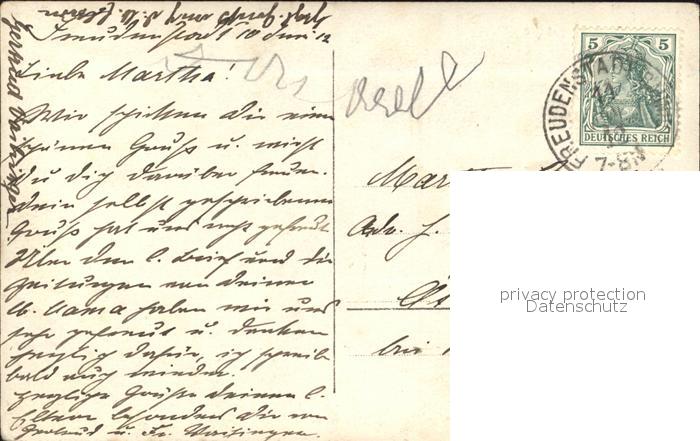 Freudenstadt 10 Juni 12
Liebe Martha!
Wir schicken dir einen
schönen Gruß u. wirst
du dich darüber freuen.
dein selbst geschriebener
Gruß hat uns sehr gefreut
Über den l. Brief und die
Zeitungen von deiner
lb. Mama haben wir uns
sehr gefreut u. danken
herzlich dafür, ich schreibe
bald auch wieder.
herzliche Grüße deinen l.
Eltern besonders dir von
Gertrud u. Fr.
5
DEUTSCHES REICH
FREUDENSTADT
7-8N
Adr. J.
bei
privacy protection
Datenschutz